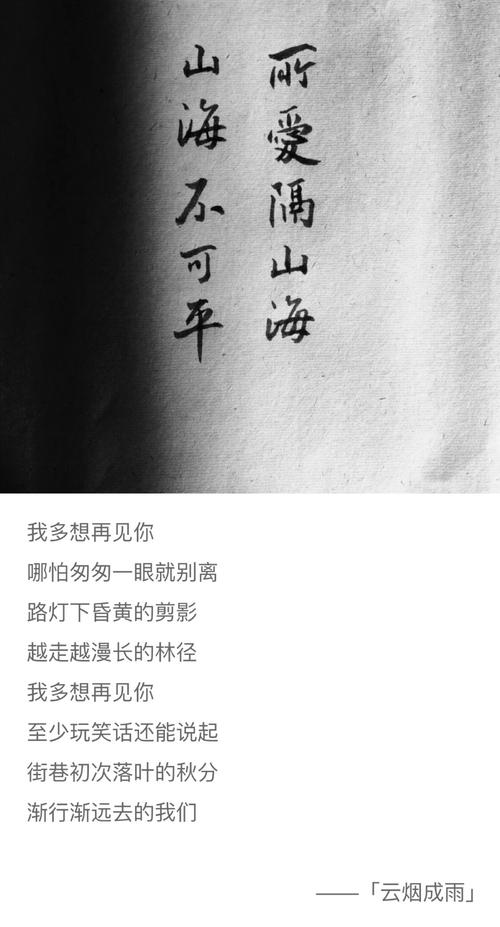 所愛隔山海
山海不可平
我多想再见你
哪怕匆匆一眼就别离
路灯下昏黄的剪影
越走越漫长的林径
我多想再见你
至少玩笑话还能说起
街巷初次落叶的秋分
渐行渐远去的我们
——「云烟成雨」